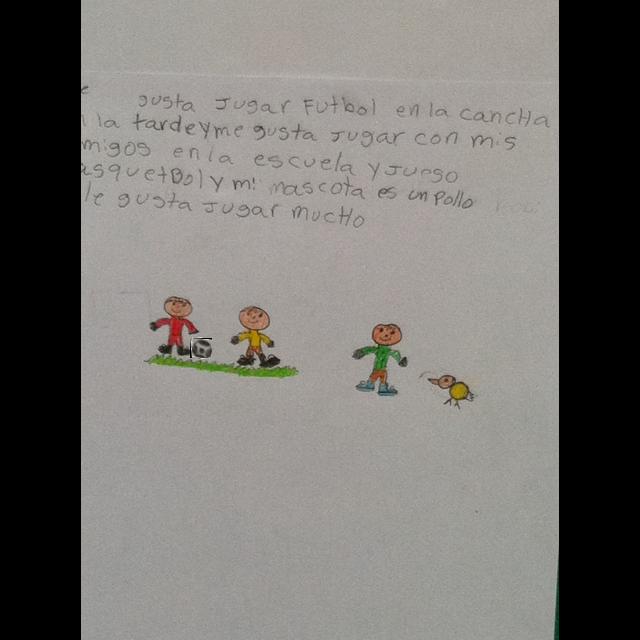 e gusta Jugar Futbol en la cancHa
la tardeyme gusta Jugar con mis
migos en la escuela y Juego
asquetBol y mi mascota es un Pollo
le gusta Jugar mucHo